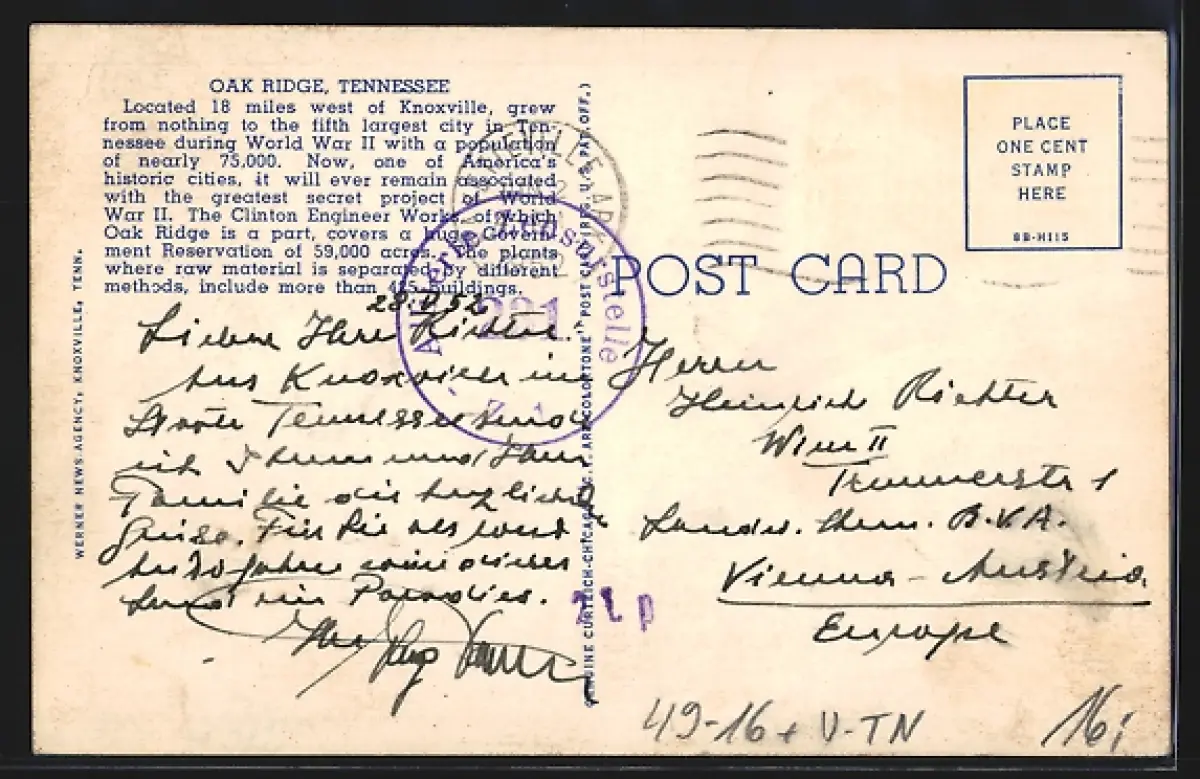 OAK RIDGE, TENNESSEE
Located 18 miles west of Knoxville, grew
from nothing to the fifth largest city in Ten-
nessee during World War II with a population
of nearly 75,000. Now, one of America's
historic cities, it will ever remain associated
with the greatest secret project of World
War II. The Clinton Engineer Works, of which
Oak Ridge is a part, covers a huge Govern-
ment Reservation of 59,000 acres. The plants
where raw material is separated by different
methods, include more than 425 buildings.
WERNER NEWS AGENCY, KNOXVILLE, TENN.
28.V.52
Lieber Herr Richter.
Aus Knoxville im
Staate Tennessee send
ich Ihnen und Ihrer
Familie die herzlichst
Grüsse. Für Sie als
Land ein Paradies.
Ihr
Österreichische Zensurstelle
221
GENUINE CURTEICH-CHICAGO "C.T. ART-COLORTONE" POST CARD (REG. U.S. PAT. OFF.)
POST CARD
PLACE
ONE CENT
STAMP
HERE
8B-H115
Herrn
Heinrich Richter
Wien II
Trunnerstr 1
Landw. Chem. B.V.A.
Vienna - Austria
Europe
49-16 + V-TN
16;